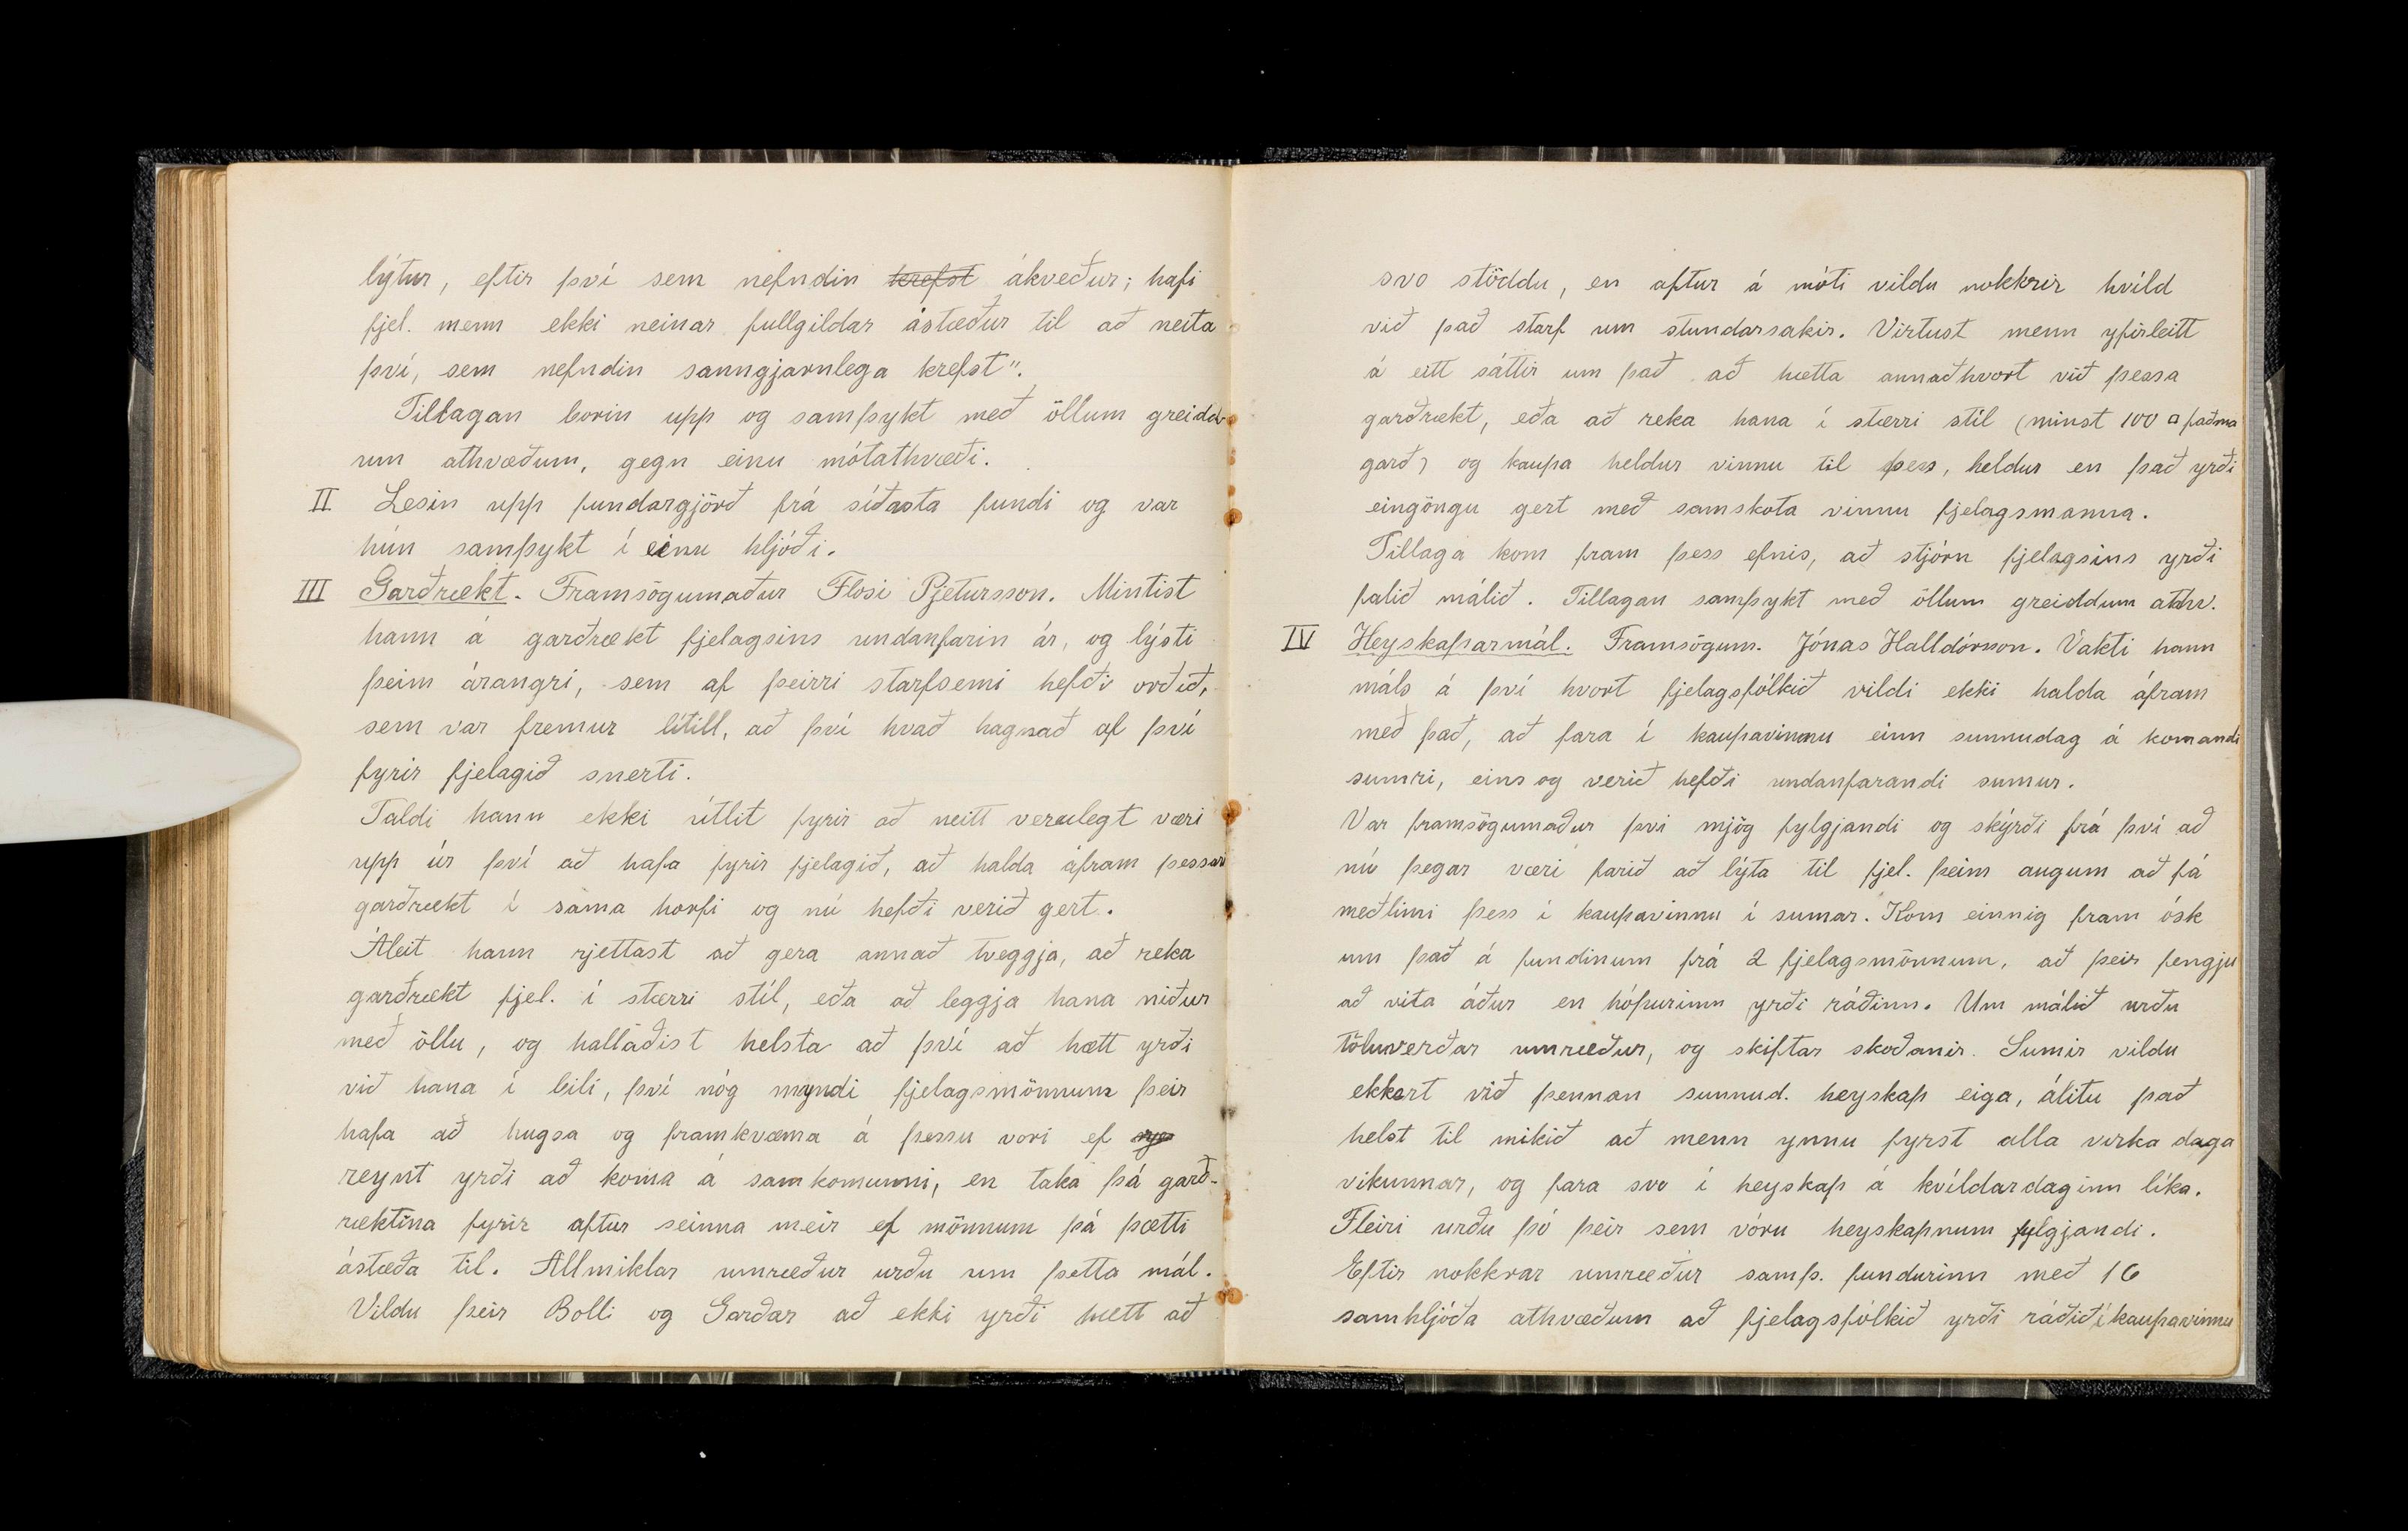 lýtur, eftir því sem nefndin krefst ákveður; hafi
fjel. menn ekki neinar fullgildar ástæður til að neita
því, sem nefndin sanngjarnlega krefst".
Tillagan borin upp og samþykt með öllum greidd-
um athvæðum, gegn einu mótathvæði.
II Lesin upp fundargjörð frá síðasta fundi og var
hún samþykt í einu hljóði.
III Garðrækt. Framsögumaður Flosi Pjetursson. Mintist
hann á garðrækt fjelagsins undanfarin ár, og lýsti
þeim árangri, sem af þeirri starfsemi hefði orðið,
sem var fremur lítill, að því hvað hagnað af því
fyrir fjelagið snerti.
Taldi hann ekki útlit fyrir að neitt verulegt væri
upp úr því að hafa fyrir fjelagið, að halda áfram þessari
garðrækt í sama horfi og nú hefði verið gert.
Áleit hann rjettast að gera annað tveggja, að reka
garðrækt fjel. í stærri stíl, eða að leggja hana niður
með öllu, og hallaðist helsta að því að hætt yrði
við hana í bili, því nóg myndi fjelagsmönnum þeir
hafa að hugsa og framkvæma á þessu vori ef
reynt yrði að koma á samkomunni, en taka þá garð-
ræktina fyrir aftur seinna meir ef mönnum þá þætti
ástæða til. Allmiklar umræður urðu um þetta mál.
Vildu þeir Bolli og Garðar að ekki yrði hætt að
svo stöddu, en aftur á móti vildu nokkrir hvíld
við það starf um stundarsakir. Virtust menn yfirleitt
á eitt sáttir um það að hætta annaðhvort við þessa
garðrækt, eða að reka hana í stærri stíl (minst 100 □ faðma
garð) og kaupa heldur vinnu til þess, heldur en það yrði
eingöngu gert með samskota vinnu fjelagsmanna.
Tillaga kom fram þess efnis, að stjórn fjelagsins yrði
falið málið. Tillagan samþykt með öllum greiddum athv.
IV Heyskaparmál. Framsögum. Jónas Halldórsson. Vakti hann
máls á því hvort fjelagsfólkið vildi ekki halda áfram
með það, að fara í kaupavinnu einn sunnudag á komandi
sumri, eins og verið hefði undanfarandi sumur.
Var framsögumaður því mjög fylgjandi og skýrði frá því að
nú þegar væri farið að lýta til fjel. þeim augum að fá
meðlimi þess í kaupavinnu í sumar. Kom einnig fram ósk
um það á fundinum frá 2 fjelagsmönnum, að þeir fengju
að vita áður en hópurinn yrði ráðinn. Um málið urðu
töluverðar umræður, og skiftar skoðanir. Sumir vildu
ekkert við þennan sunnud. heyskap eiga, álitu það
helst til mikið að menn ynnu fyrst alla virka daga
vikunnar, og fara svo í heyskap á kvíldardaginn líka.
Fleiri urðu þó þeir sem vóru heyskapnum fylgjandi.
Eftir nokkrar umræður samþ. fundurinn með 16
samhljóða athvæðum að fjelagsfólkið yrði ráðið í kaupavinnu